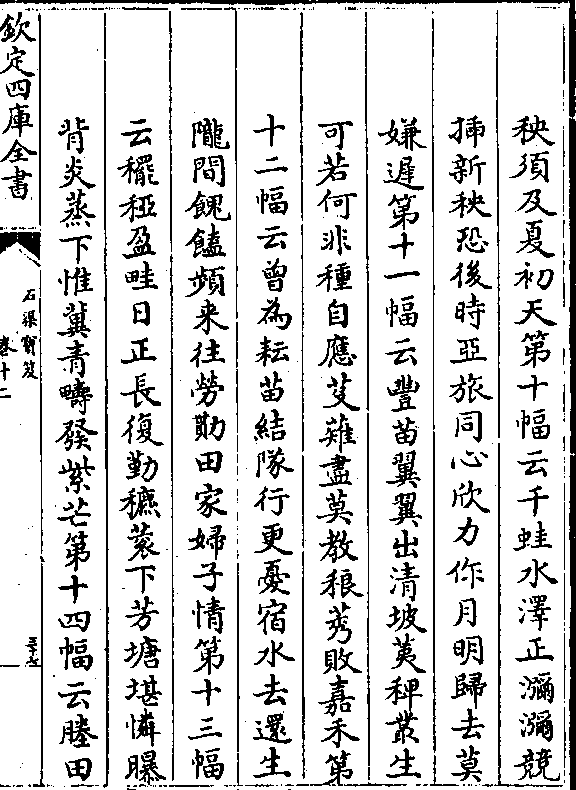 秧須及夏初天第十幅云千蛙水澤正瀰瀰競
揷新秧恐後時亞旅同心欣力作月明歸去莫
嫌遲第十一幅云豐苗翼翼出清坡荑稗叢生
可若何非種自應芟薙盡莫教稂莠敗嘉禾第
十二幅云曾為耘苗結隊行更憂宿水去還生
隴間餽饁頻来往勞勩田家婦子情第十三幅
云䆉稏盈畦日正長復勤穮蔉下芳塘堪憐曝
背炎蒸下惟冀青疇發紫芒第十四幅云塍田
欽定四庫全書
石渠寳笈
卷十二
三十七